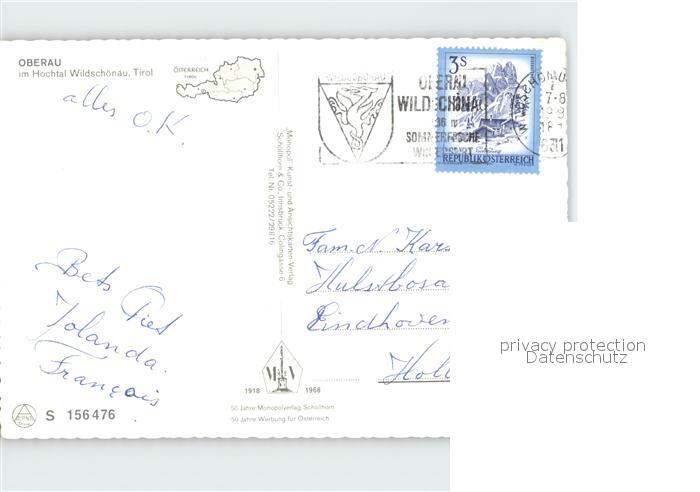 OBERAU
im Hochtal Wildschönau, Tirol
ÖSTERREICH
TIROL
alles O.K.
Bets Piet
Yolanda.
François
S 156476
Monopol Kunst- und Ansichtskarten-Verlag
Schöllhorn & Co. Innsbruck, Colingasse 6
Tel. Nr. 05222/29816
1918 1968
50 Jahre Monopolverlag Schöllhorn
50 Jahre Werbung für Österreich
OBERAU
WILDSCHÖNAU
936 m
SOMMERFRISCHE
WINTERSPORT
3S
REPUBLIK ÖSTERREICH
7-8
6311
Fam. N. Kars
Hulstbosa
Eindhoven
Holl
privacy protection
Datenschutz